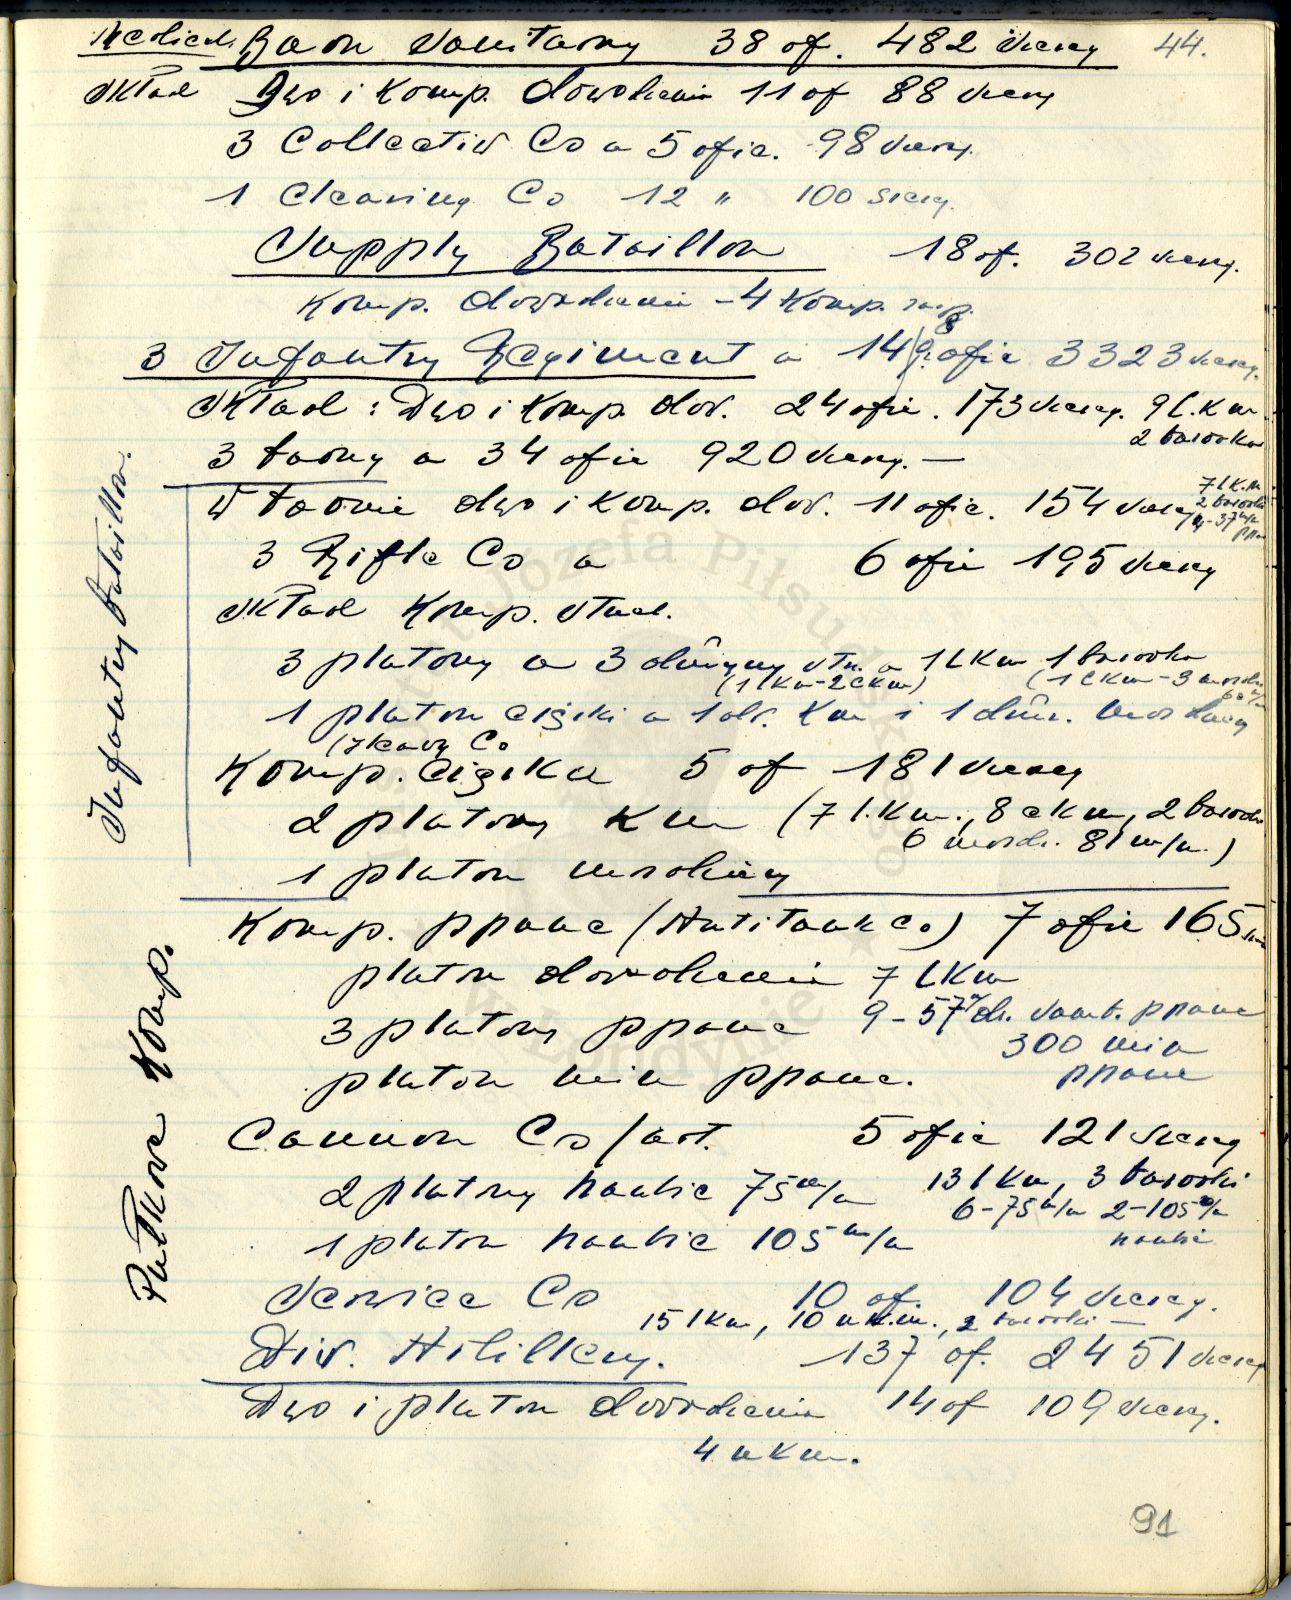 Medical. Baon Sanitarny 38 of. 482 szereg 44.
Skład Dwo i Komp. dowodzenia 11 of 88 szereg
3 Collectiv Co a 5 ofic. 98 szereg.
1 Clearing Co 12 " 100 szereg.
Supply Bataillon 18 of. 302 szereg.
Komp. dowodzenia - 4 Komp. zaop.
3 Infantry Regiment a 148 ofic 3323 szereg.
Skład: Dwo i Komp. dow. 24 ofic. 173 szereg. 9 l.Km
2 bazooka
3 baony a 34 ofic 920 szereg. —
W baonie dwo i Komp. dow. 11 ofic. 154 szereg
7 l K.m
2 bazooki
4-37 m/m
ppanc
3 Rifle Co a 6 ofic 195 szereg
Skład Komp. strzel.
3 plutony a 3 drużyny strz. a 1 lKm 1 bazooka
(1 lKm-2 cKm) (1 cKm-3 moźdz. 60 m/m
1 pluton ciężki a 1 dr. Km i 1 druż. moździerzy
(Heavy Co
Komp. ciężka 5 of 181 szereg
2 plutony Km (7 l.Km., 8 cKm, 2 bazooki
6 moźdz. 81 m/m.)
1 pluton moździerzy
Infantry bataillon.
Komp. ppanc (Antitank Co) 7 ofic 165 szer
pluton dowodzenia 7 lKm
3 plutony ppanc 9-57 m/ dz. samb. ppanc
300 min
pluton min ppanc. ppanc
Cannon Co/art. 5 ofic 121 szereg
2 plutony haubic 75 m/m 13 lKm, 3 bazooki
6-75 m/m 2-105 m/m
1 pluton haubic 105 m/m haubic
Pułkowe Komp.
Service Co 10 of. 104 szereg.
15 lKm, 10 n K.m., 2 bazooki —
Div. Artillery. 137 of. 2451 szereg
Dwo i pluton dowodzenia 14 of 109 szereg.
4 n K m.
91
Józefa Piłsudskiego
w Londynie